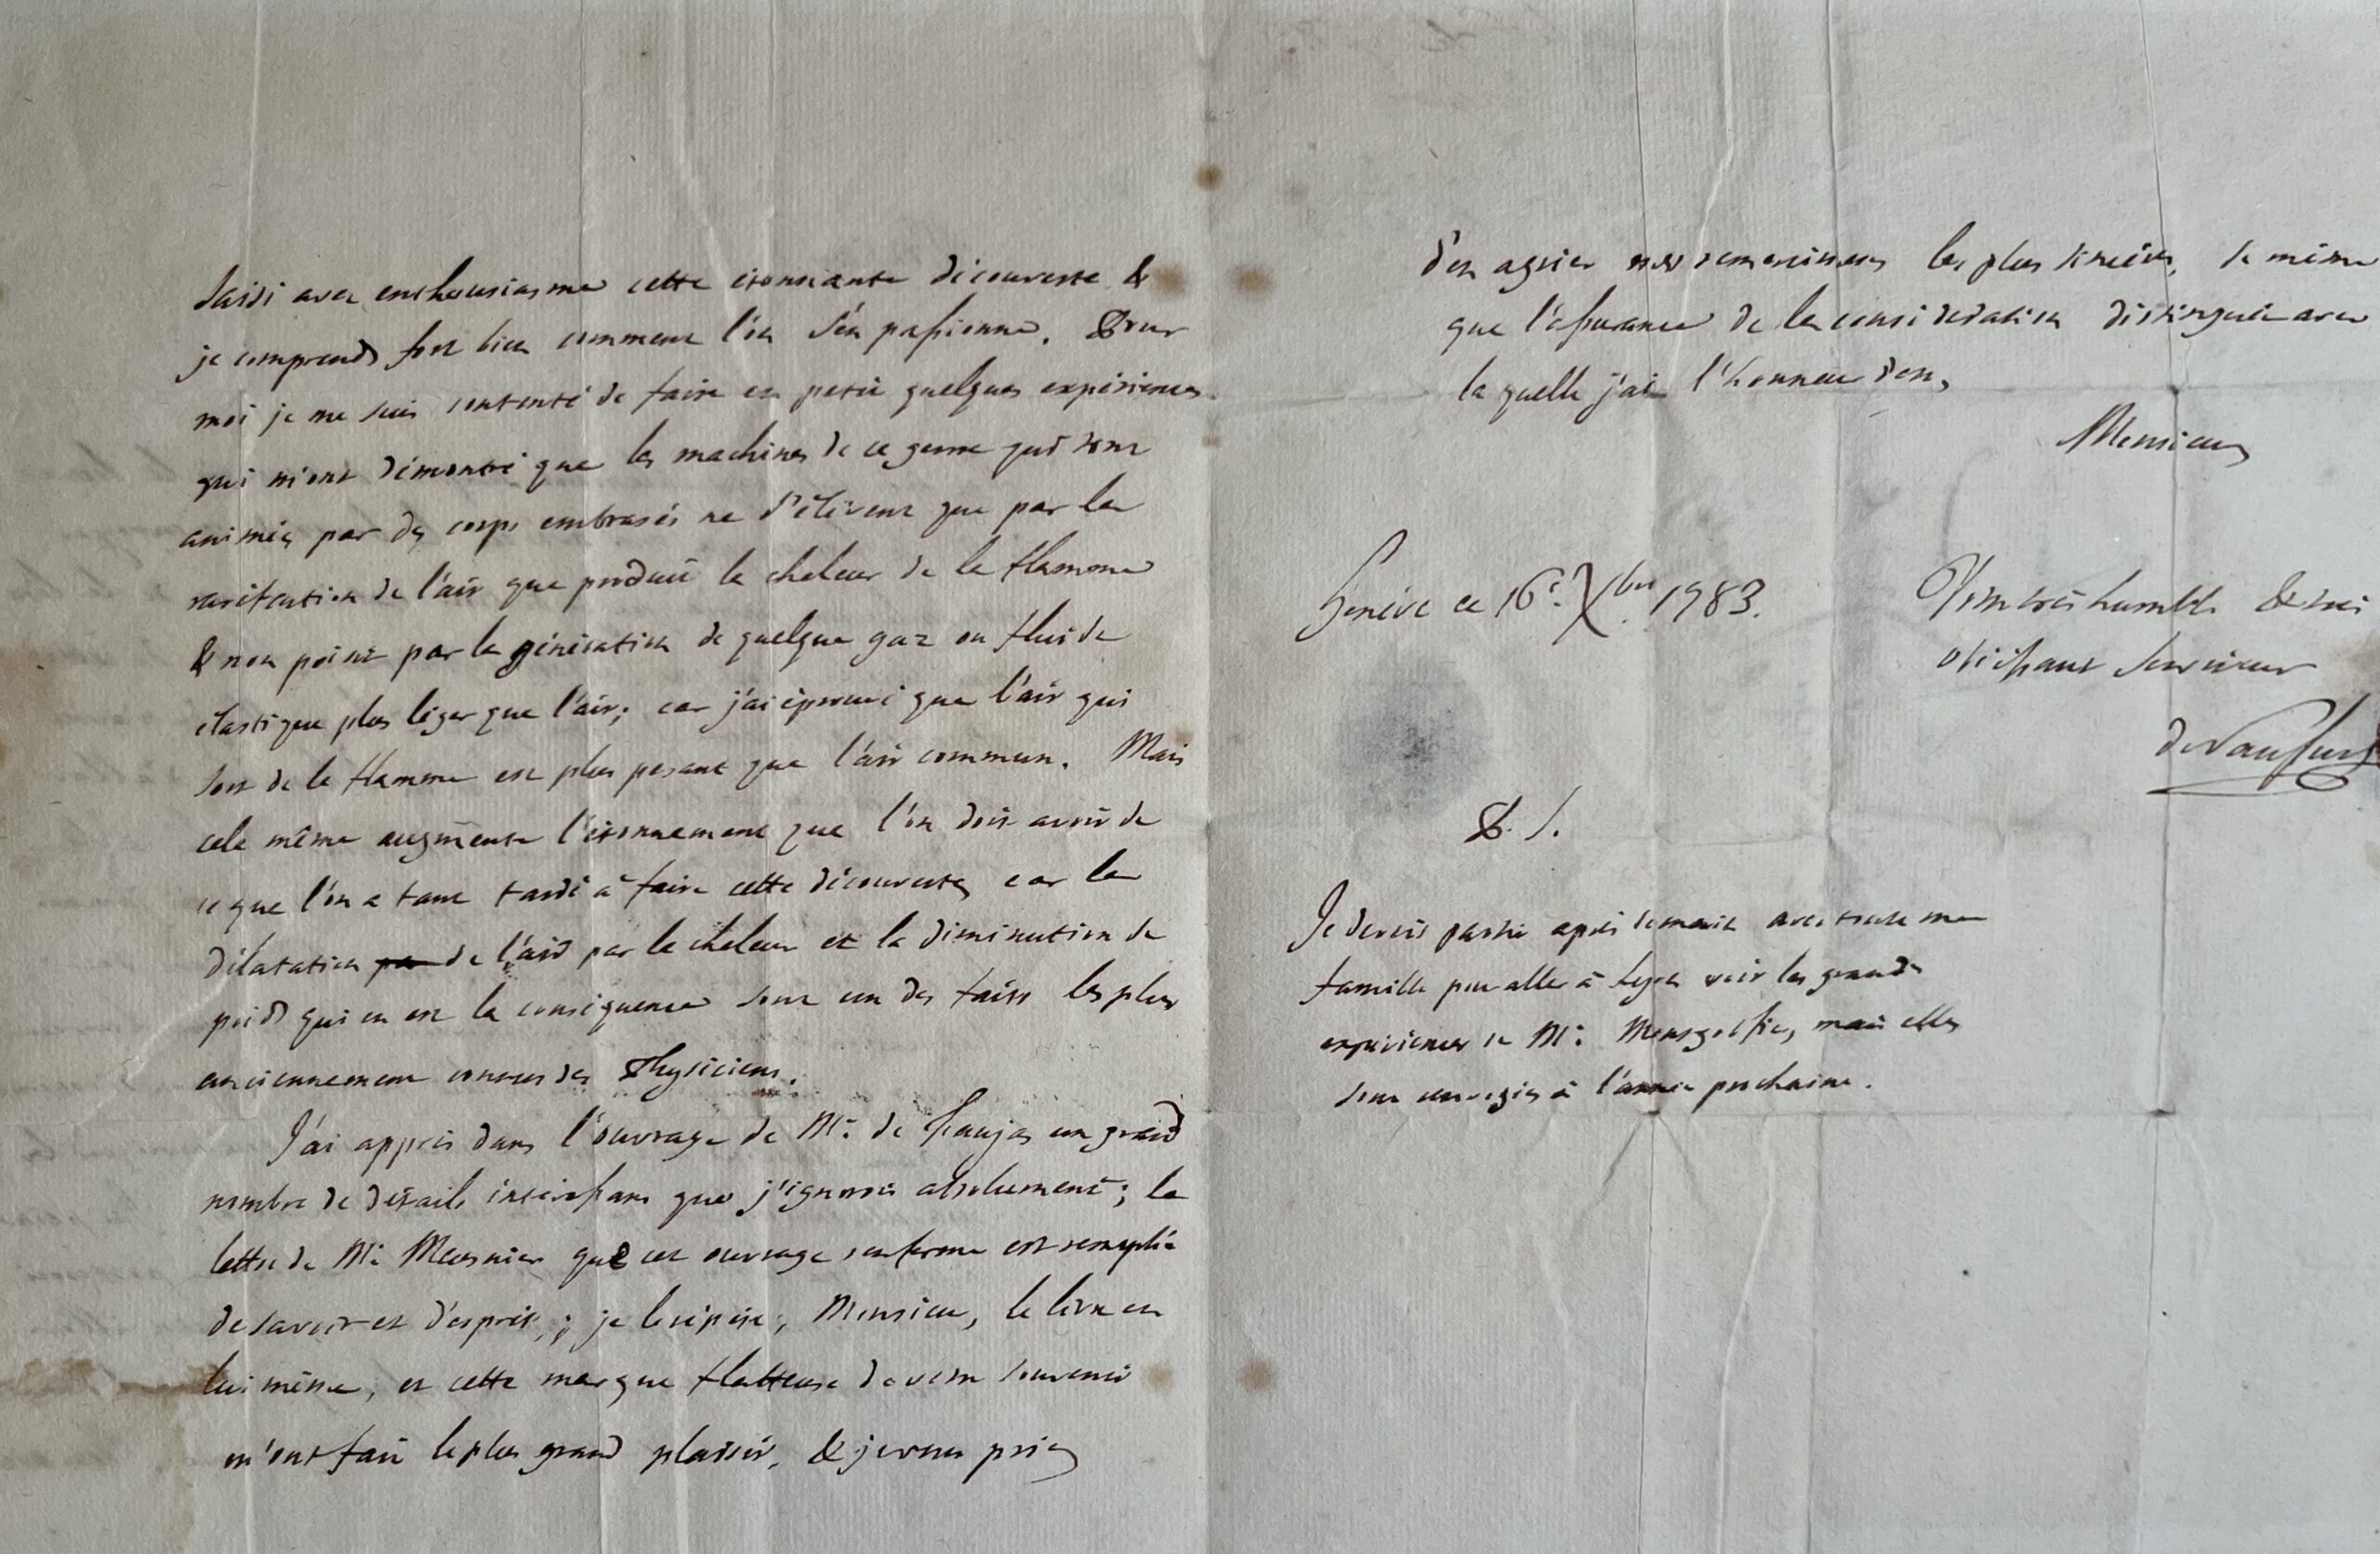 saisi avec enthousiasme cette étonnante découverte &
je comprends fort bien comment l'on s'en passionne. Pour
moi je me suis contenté de faire en petit quelques expériences
qui m'ont démontré que les machines de ce genre qui sont
animées par des corps embrasés ne s'élèvent que par la
raréfaction de l'air que produit la chaleur de la flamme
& non point par la génération de quelque gaz ou fluide
élastique plus léger que l'air; car j'ai éprouvé que l'air qui
sort de la flamme est plus pesant que l'air commun. Mais
cela même augmente l'étonnement que l'on doit avoir de
ce que l'on a tant tardé à faire cette découverte, car la
dilatation de l'air par la chaleur et la diminution de
poids qui en est la conséquence sont un des faits les plus
anciennement connus des Physiciens.
J'ai appris dans l'ouvrage de Mr. de Faujas un grand
nombre de détails intéressans que j'ignorois absolument; la
lettre de Mr. Meusnier que cet ouvrage renferme est remplie
de savoir et d'esprit; je le répète, Monsieur, le livre en
lui même, et cette marque flatteuse de votre souvenir
m'ont fait le plus grand plaisir, & je vous prie
d'en agréer mes remercimens les plus sincères, de même
que l'assurance de la considération distinguée avec
la quelle j'ai l'honneur d'être,
Monsieur
Genève ce 16e. Xbre 1783.
Votre très humble & très
obéissant serviteur
de Saussure
P. S.
Je devois partir après demain avec toute ma
famille pour aller à Lyon voir les grandes
expériences de Mr. Montgolfier, mais elles
sont renvoyées à l'année prochaine.